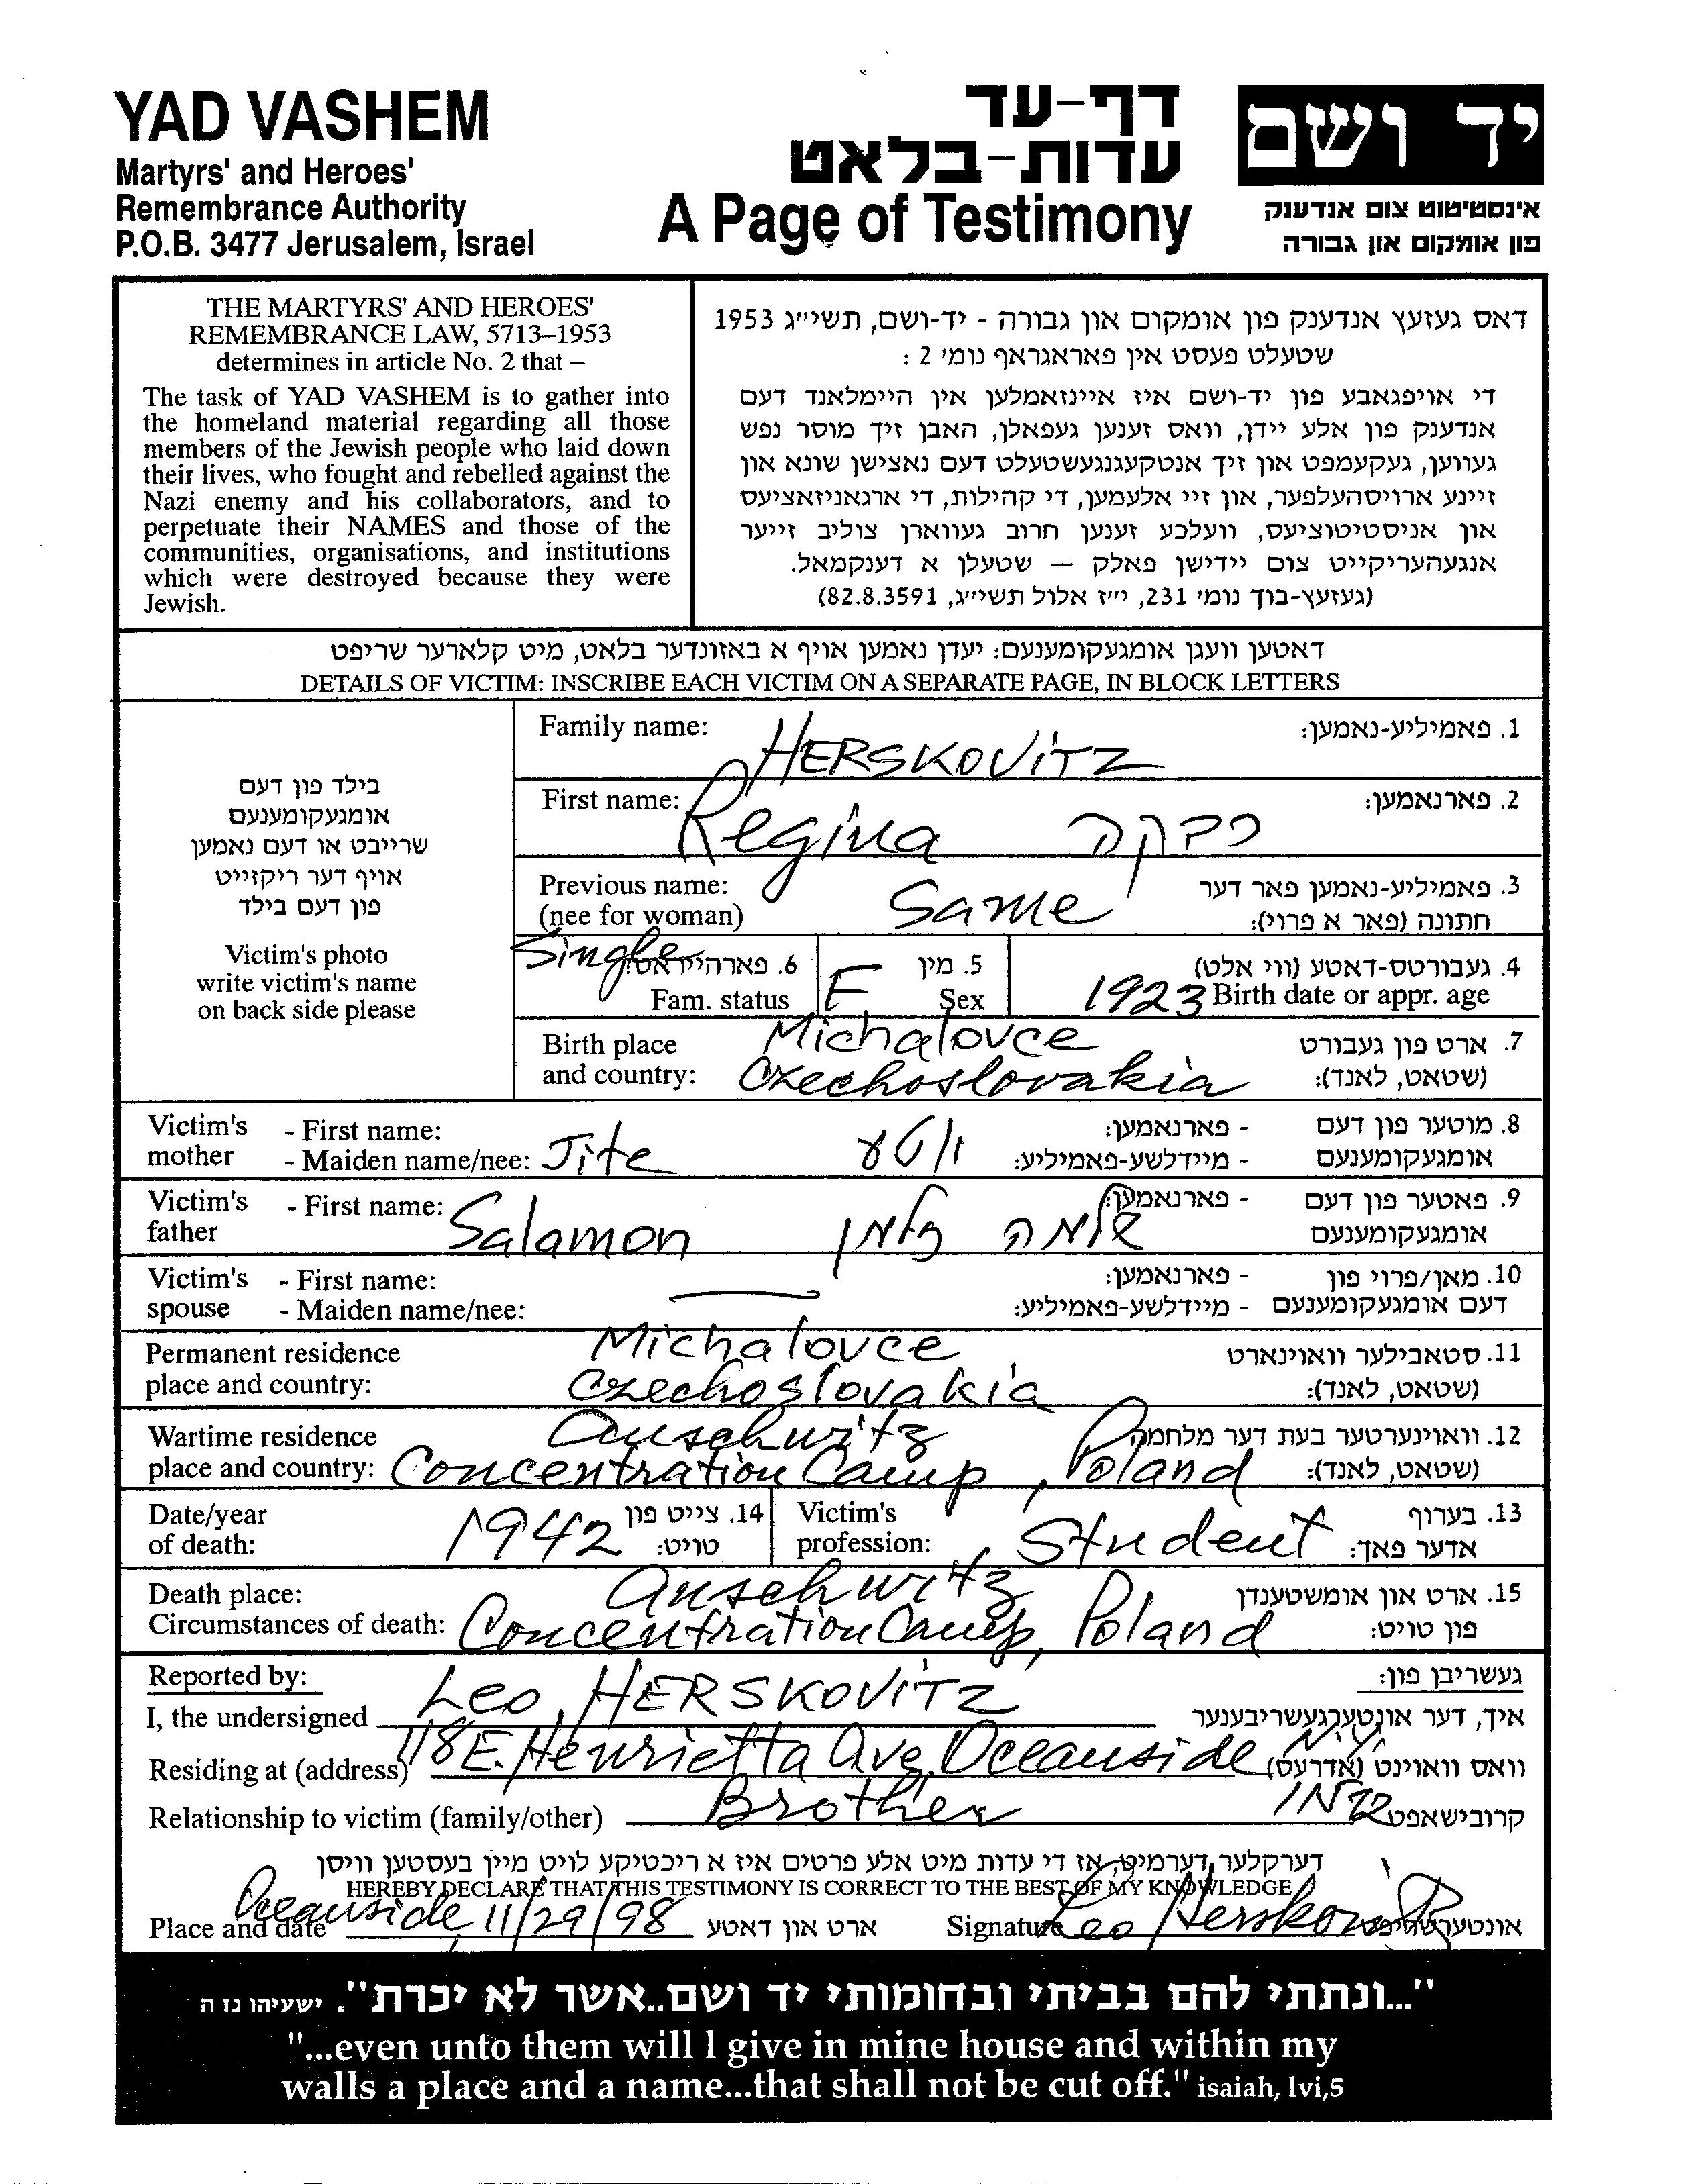 YAD VASHEM
Martyrs' and Heroes'
Remembrance Authority
P.O.B. 3477 Jerusalem, Israel
דף-עד
עדות-בלאט
A Page of Testimony
יד ושם
אינסטיטוט צום אנדענק
פון אומקום און גבורה
THE MARTYRS' AND HEROES'
REMEMBRANCE LAW, 5713–1953
determines in article No. 2 that –
The task of YAD VASHEM is to gather into
the homeland material regarding all those
members of the Jewish people who laid down
their lives, who fought and rebelled against the
Nazi enemy and his collaborators, and to
perpetuate their NAMES and those of the
communities, organisations, and institutions
which were destroyed because they were
Jewish.
דאס געזעץ אנדענק פון אומקום און גבורה - יד-ושם, תשי״ג 1953
שטעלט פעסט אין פאראגראף נומ׳ 2 :
די אויפגאבע פון יד-ושם איז איינזאמלען אין היימלאנד דעם
אנדענק פון אלע יידן, וואס זענען געפאלן, האבן זיך מוסר נפש
געווען, געקעמפט און זיך אנטקעגנגעשטעלט דעם נאצישן שונא און
זיינע ארויסהעלפער, און זיי אלעמען, די קהילות, די ארגאניזאציעס
און אניסטיטוציעס, וועלכע זענען חרוב געווארן צוליב זייער
אנגעהעריקייט צום יידישן פאלק — שטעלן א דענקמאל.
(געזעץ-בוך נומ׳ 231, י״ז אלול תשי״ג, 82.8.3591)
דאטען וועגן אומגעקומענעם: יעדן נאמען אויף א באזונדער בלאט, מיט קלארער שריפט
DETAILS OF VICTIM: INSCRIBE EACH VICTIM ON A SEPARATE PAGE, IN BLOCK LETTERS
בילד פון דעם
אומגעקומענעם
שרייבט או דעם נאמען
אויף דער ריקזייט
פון דעם בילד
Victim's photo
write victim's name
on back side please
Family name: HERSKOVITZ 1. פאמיליע-נאמען:
First name: Regina רבקה 2. פארנאמען:
Previous name: Same 3. פאמיליע-נאמען פאר דער
(nee for woman) חתונה (פאר א פרוי):
Single 6. פארהייראט: F 5. מין 4. געבורטס-דאטע (ווי אלט)
Fam. status Sex 1923 Birth date or appr. age
Birth place Michalovce 7. ארט פון געבורט
and country: Czechoslovakia (שטאט, לאנד):
Victim's - First name: - פארנאמען: 8. מוטער פון דעם
mother - Maiden name/nee: Jite יוטע - מיידלשע-פאמיליע: אומגעקומענעם
Victim's - First name: - פארנאמען: 9. פאטער פון דעם
father Salamon שלמה זלמן אומגעקומענעם
Victim's - First name: - פארנאמען: 10. מאן/פרוי פון
spouse - Maiden name/nee: - מיידלשע-פאמיליע: דעם אומגעקומענעם
Permanent residence Michalovce 11. סטאבילער וואוינארט
place and country: Czechoslovakia (שטאט, לאנד):
Wartime residence Auschwitz 12. וואוינערטער בעת דער מלחמה
place and country: Concentration Camp, Poland (שטאט, לאנד):
Date/year 14. צייט פון Victim's 13. בערוף
of death: 1942 טויט: profession: Student אדער פאך:
Death place: Auschwitz 15. ארט און אומשטענדן
Circumstances of death: Concentration Camp, Poland פון טויט:
Reported by: געשריבן פון:
I, the undersigned Leo HERSKOVITZ איך, דער אונטערגעשריבענער
Residing at (address) 118 E. Henrietta Ave, Oceanside N.Y. וואס וואוינט (אדרעס)
Relationship to victim (family/other) Brother קרובישאפט
דערקלער דערמיט, אז די עדות מיט אלע פרטים איז א ריכטיקע לויט מיין בעסטען וויסן
HEREBY DECLARE THAT THIS TESTIMONY IS CORRECT TO THE BEST OF MY KNOWLEDGE
Place and date Oceanside, 11/29/98 ארט און דאטע Signature Leo Herskovitz אונטערשריפט
"...ונתתי להם בביתי ובחומותי יד ושם..אשר לא יכרת". ישעיהו נז ה
"...even unto them will I give in mine house and within my
walls a place and a name...that shall not be cut off." isaiah, lvi,5